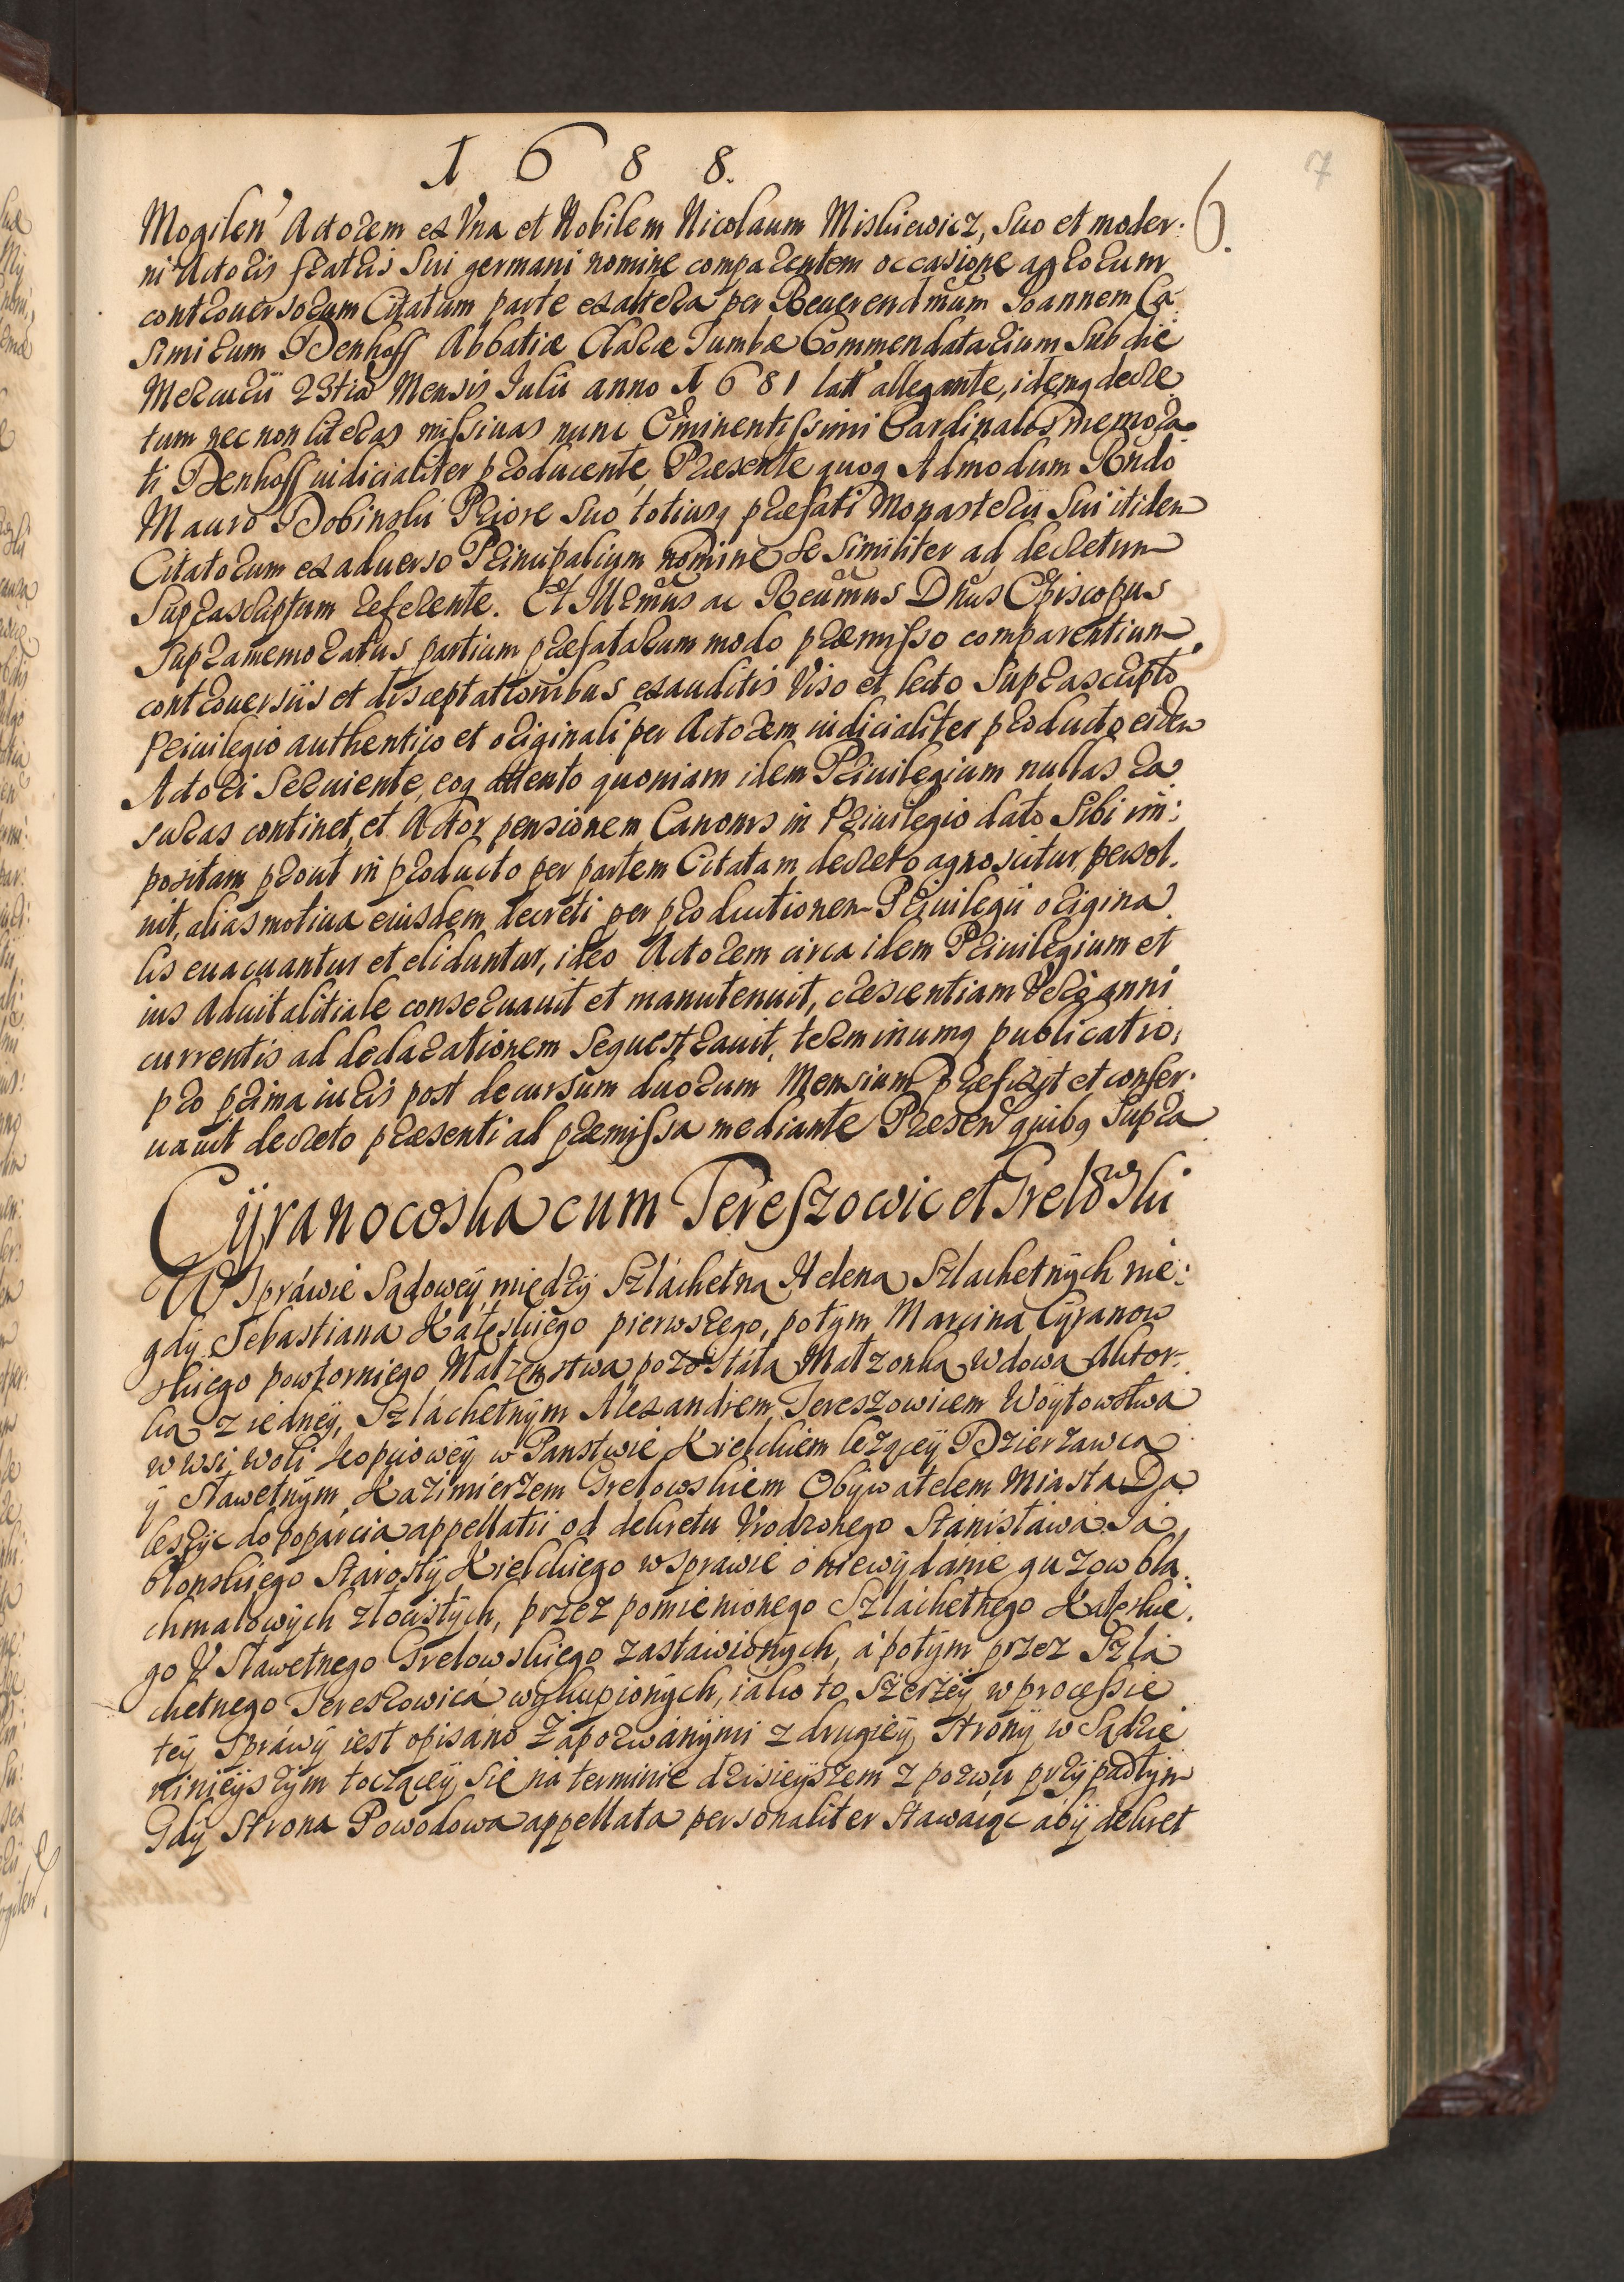 1688.
7
6.
Mogilen Actorem ex Una et Nobilem Nicolaum Miskiewicz, Suo et moder:
ni Actoris fratris Sui germani nomine comparentem occasione agrorum
controuersorum Citatum parte ex altera per Reuerendmum Joannem Ca:
simirum Denhoff Abbatiæ Claræ Tumbæ Commendatarium Sub die
Mercurii 23tia Mensis Julii anno 1681 latt allegante, idemq decre
tum nec non literas missiuas nunc Eminentissimi Cardinalis memora
ti Denhoff iudicialiter producente, Præsente quoq Admodum Rndo
Mauro Dobinski Priore Suo totiusq præfati Monasterii Sui itidem
Citatorum ex aduerso Principalium nomine Se Similiter ad decretum
Suprascriptum referente. Et Illrmus ac Reumus Dnus Episcopus
Supramemoratus partium præfatarum modo præmisso comparentium
controuersiis et disceptationibus exauditis Viso et lecto Suprascripto
Priuilegio authentico et originali per Actorem iudicialiter producto eidem
Actori Seruiente, eoq attento quoniam idem Priuilegium nullas ra
suras continet, et Actor pensionem Canonis in Priuilegio dato Sibi im:
positam prout in producto per partem Citatam decreto agnoscitur, persol.
uit, alias motiua eiusdem decreti per productionem Priuilegii origina
lis euacuantur et eliduntur, ideo Actorem circa idem Priuilegium et
ius Aduitalitiale conseruauit et manutenuit, crescentiam Vero anni
currentis ad declarationem Sequestrauit, terminumq publicatio:
pro prima iuris post decursum duorum Mensium præfixit et conser:
uauit decreto præsenti ad præmissa mediante Præsen quibq Supra
Cÿranowska cum Tereszowic et Grelowski
W Spráwie Sądoweÿ międzÿ Szláchetną Heleną Szlachetnÿch nie:
gdÿ Sebastiana Kałęskiego pierwszego, potÿm Marcina Cÿranow
skiego powtorniego Małzenstwa pozostáłą Małzonką Wdową Aktor:
ką z iedneÿ, Szláchetnÿm Alexandrem Tereszowicem Woÿtowstwa
w wsi Woli Kopcioweÿ w Panstwie Kielckiem leząceÿ Dzierzawcą
ÿ Sławetnÿm Kazimierzem Grelowskiem Obÿwatelem Miasta Da
leszÿc do popárcia appellatii od dekretu Urodzonego Stanisława Ja
błonskiego Starostÿ Kielckiego w sprawie o niewÿdanie guzow bla
chmalowÿch złocistÿch, przez pomienionego Szlachetnego Kałęskie:
go V Sławetnego Grelowskiego zastawionÿch, á potÿm przez Szla
chetnego Tereszowicá wÿkupionÿch, iáko to Szerzeÿ w processie
teÿ Spráwÿ iest opisáno Zápozwánÿmi z drugieÿ Stronÿ w Sądzie
ninieÿszÿm toczączeÿ się ná terminie dzisieÿszem z pozwu przÿpadłÿm
Gdÿ Strona Powodowa appellata personaliter Stawaiąc ábÿ dekret